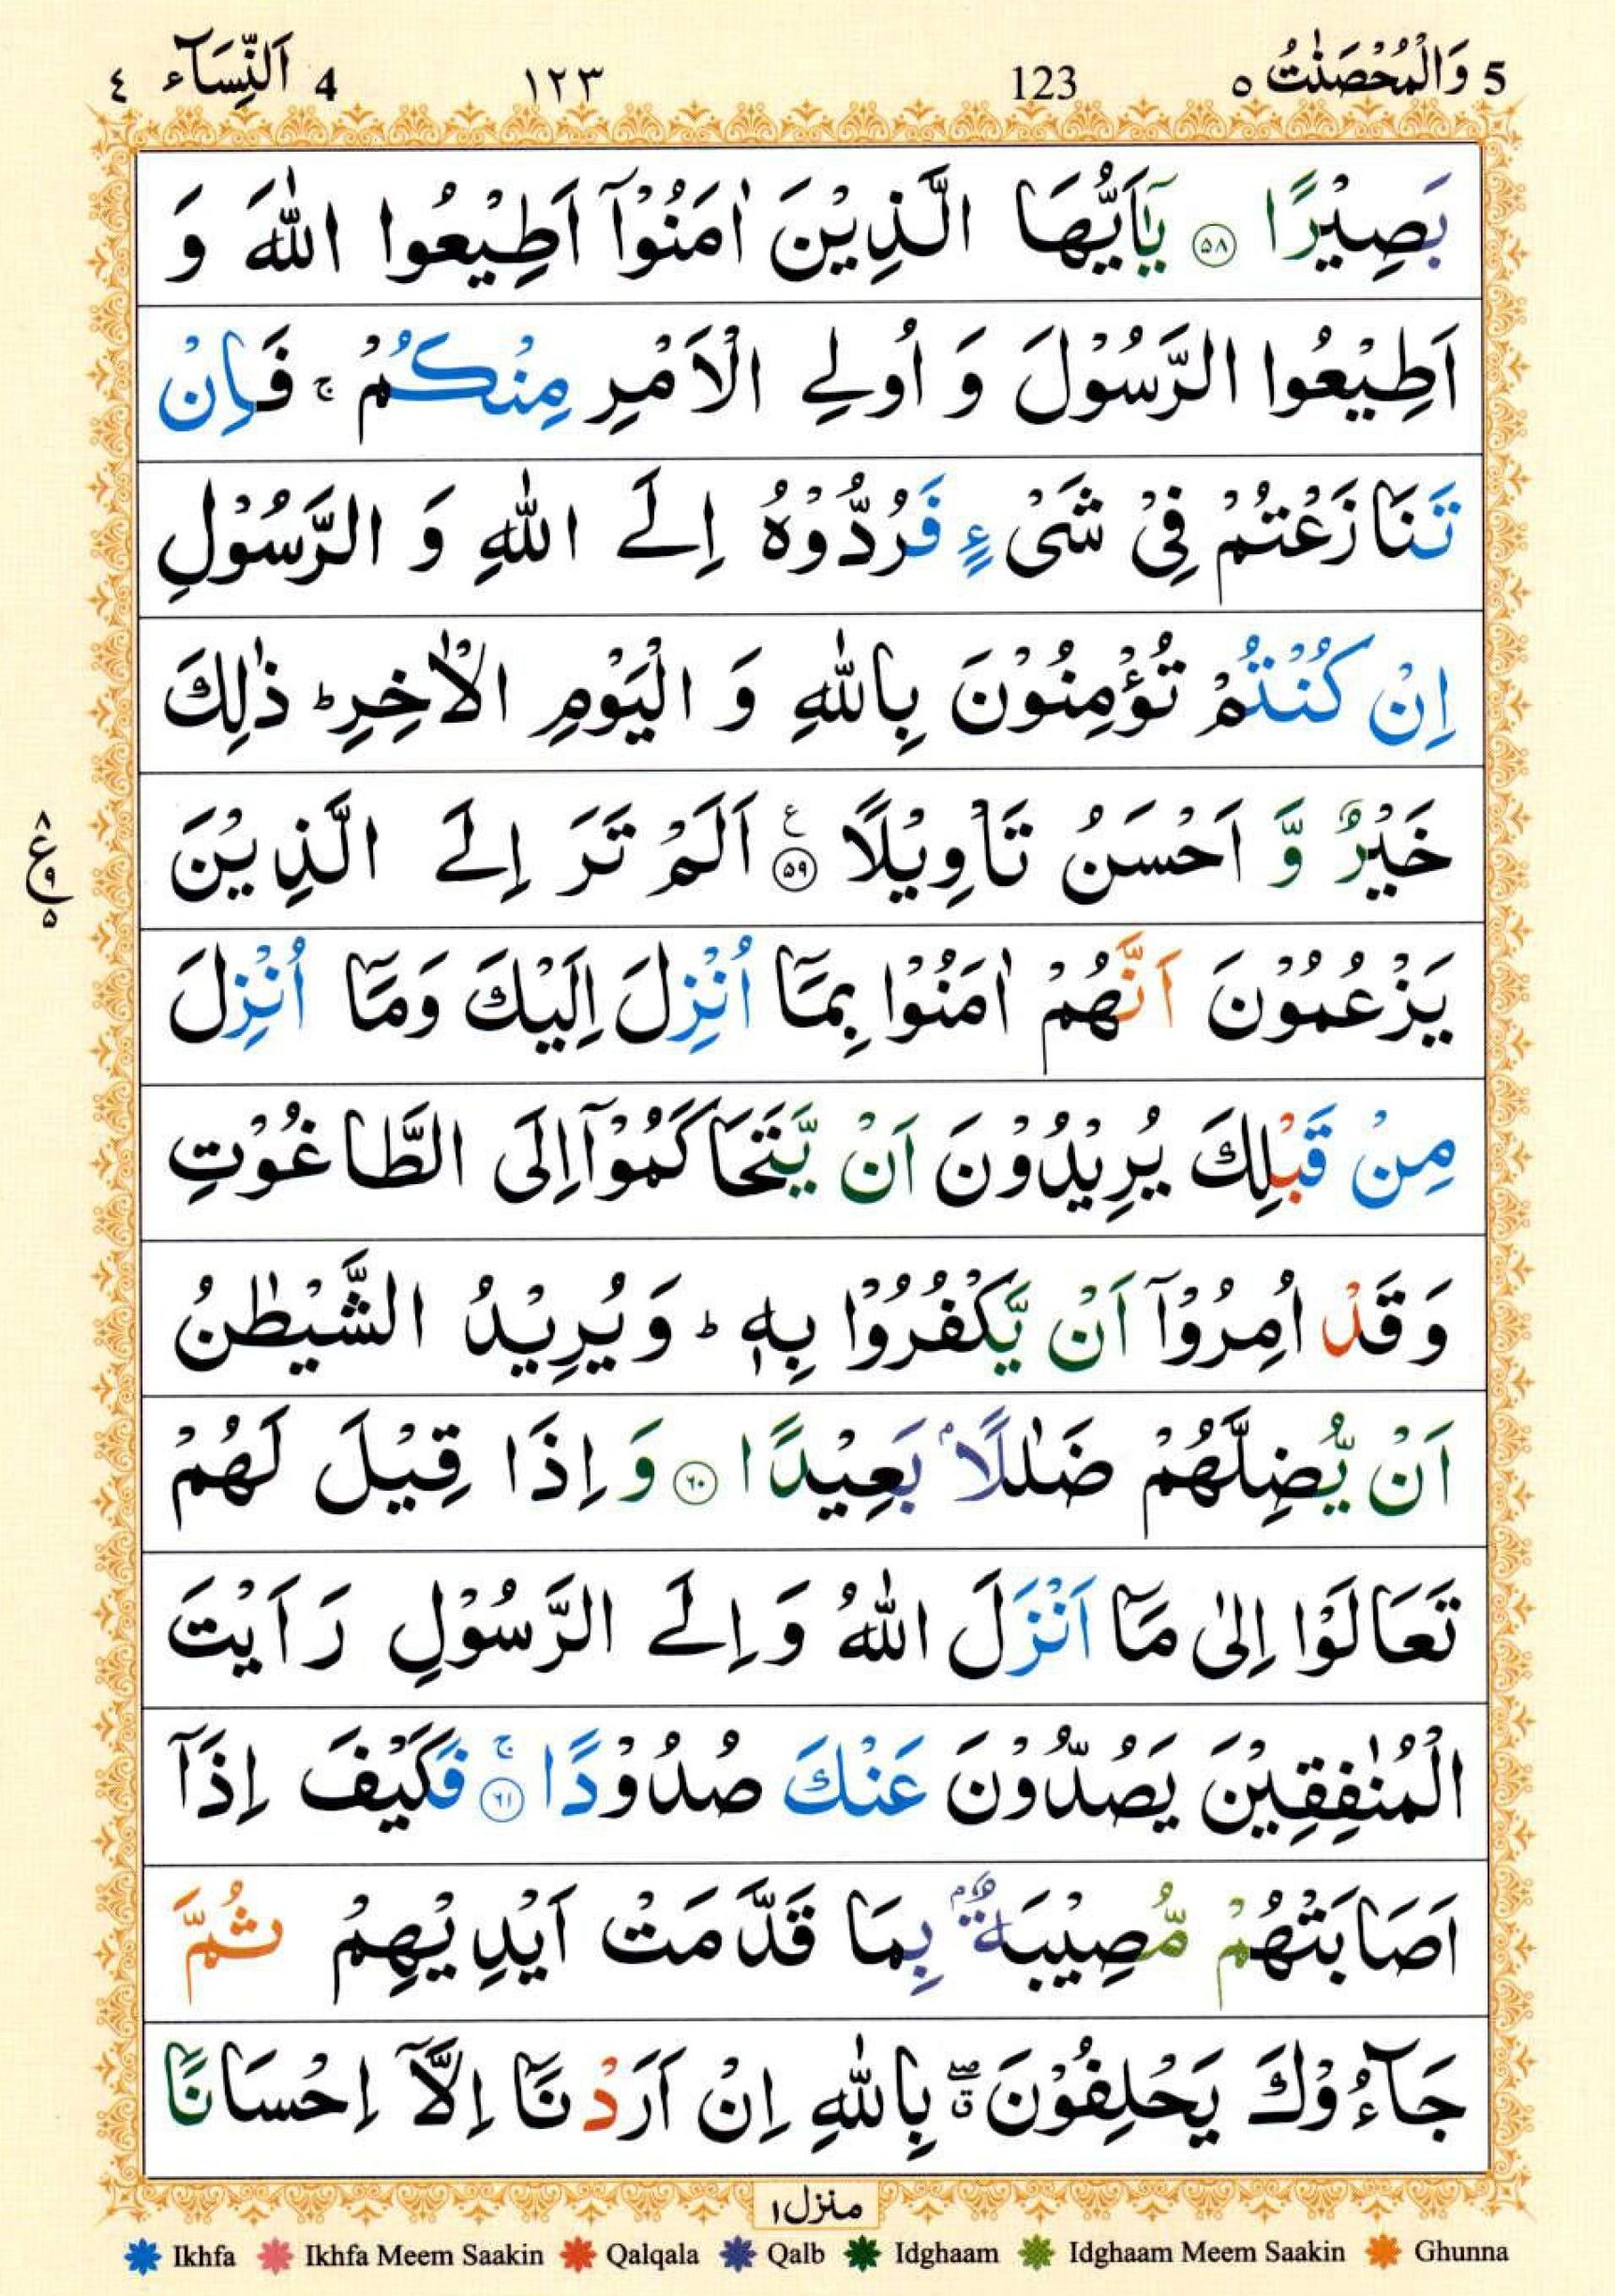 5 وَالْمُحْصَنٰتُ ٥ 123 ١٢٣ 4 اَلنِّسَآء ٤
بَصِيْرًا ۝۵۸ يٰۤاَيُّهَا الَّذِيْنَ اٰمَنُوْۤا اَطِيْعُوا اللّٰهَ وَ
اَطِيْعُوا الرَّسُوْلَ وَ اُولِے الْاَمْرِ مِنْكُمْ ۚ فَاِنْ
تَنَازَعْتُمْ فِىْ شَىْءٍ فَرُدُّوْهُ اِلَے اللّٰهِ وَ الرَّسُوْلِ
اِنْ كُنْتُمْ تُؤْمِنُوْنَ بِاللّٰهِ وَ الْيَوْمِ الْاٰخِرِ ؕ ذٰلِكَ
خَيْرٌ وَّ اَحْسَنُ تَاْوِيْلًا ۝۵۹ ع اَلَمْ تَرَ اِلَے الَّذِيْنَ
٨
ع
٩
۵
يَزْعُمُوْنَ اَنَّهُمْ اٰمَنُوْا بِمَاۤ اُنْزِلَ اِلَيْكَ وَمَاۤ اُنْزِلَ
مِنْ قَبْلِكَ يُرِيْدُوْنَ اَنْ يَّتَحَاكَمُوْۤا اِلَى الطَّاغُوْتِ
وَقَدْ اُمِرُوْۤا اَنْ يَّكْفُرُوْا بِهٖ ؕ وَيُرِيْدُ الشَّيْطٰنُ
اَنْ يُّضِلَّهُمْ ضَلٰلًاۢ بَعِيْدًا ۝۶۰ وَ اِذَا قِيْلَ لَهُمْ
تَعَالَوْا اِلىٰ مَاۤ اَنْزَلَ اللّٰهُ وَاِلَے الرَّسُوْلِ رَاَيْتَ
الْمُنٰفِقِيْنَ يَصُدُّوْنَ عَنْكَ صُدُوْدًا ۝۶۱ ۚ فَكَيْفَ اِذَاۤ
اَصَابَتْهُمْ مُّصِيْبَةٌۢ بِمَا قَدَّمَتْ اَيْدِيْهِمْ ثُمَّ
جَآءُوْكَ يَحْلِفُوْنَ ۖۗ بِاللّٰهِ اِنْ اَرَدْنَاۤ اِلَّاۤ اِحْسَانًا
منزل ١
Ikhfa Ikhfa Meem Saakin Qalqala Qalb Idghaam Idghaam Meem Saakin Ghunna